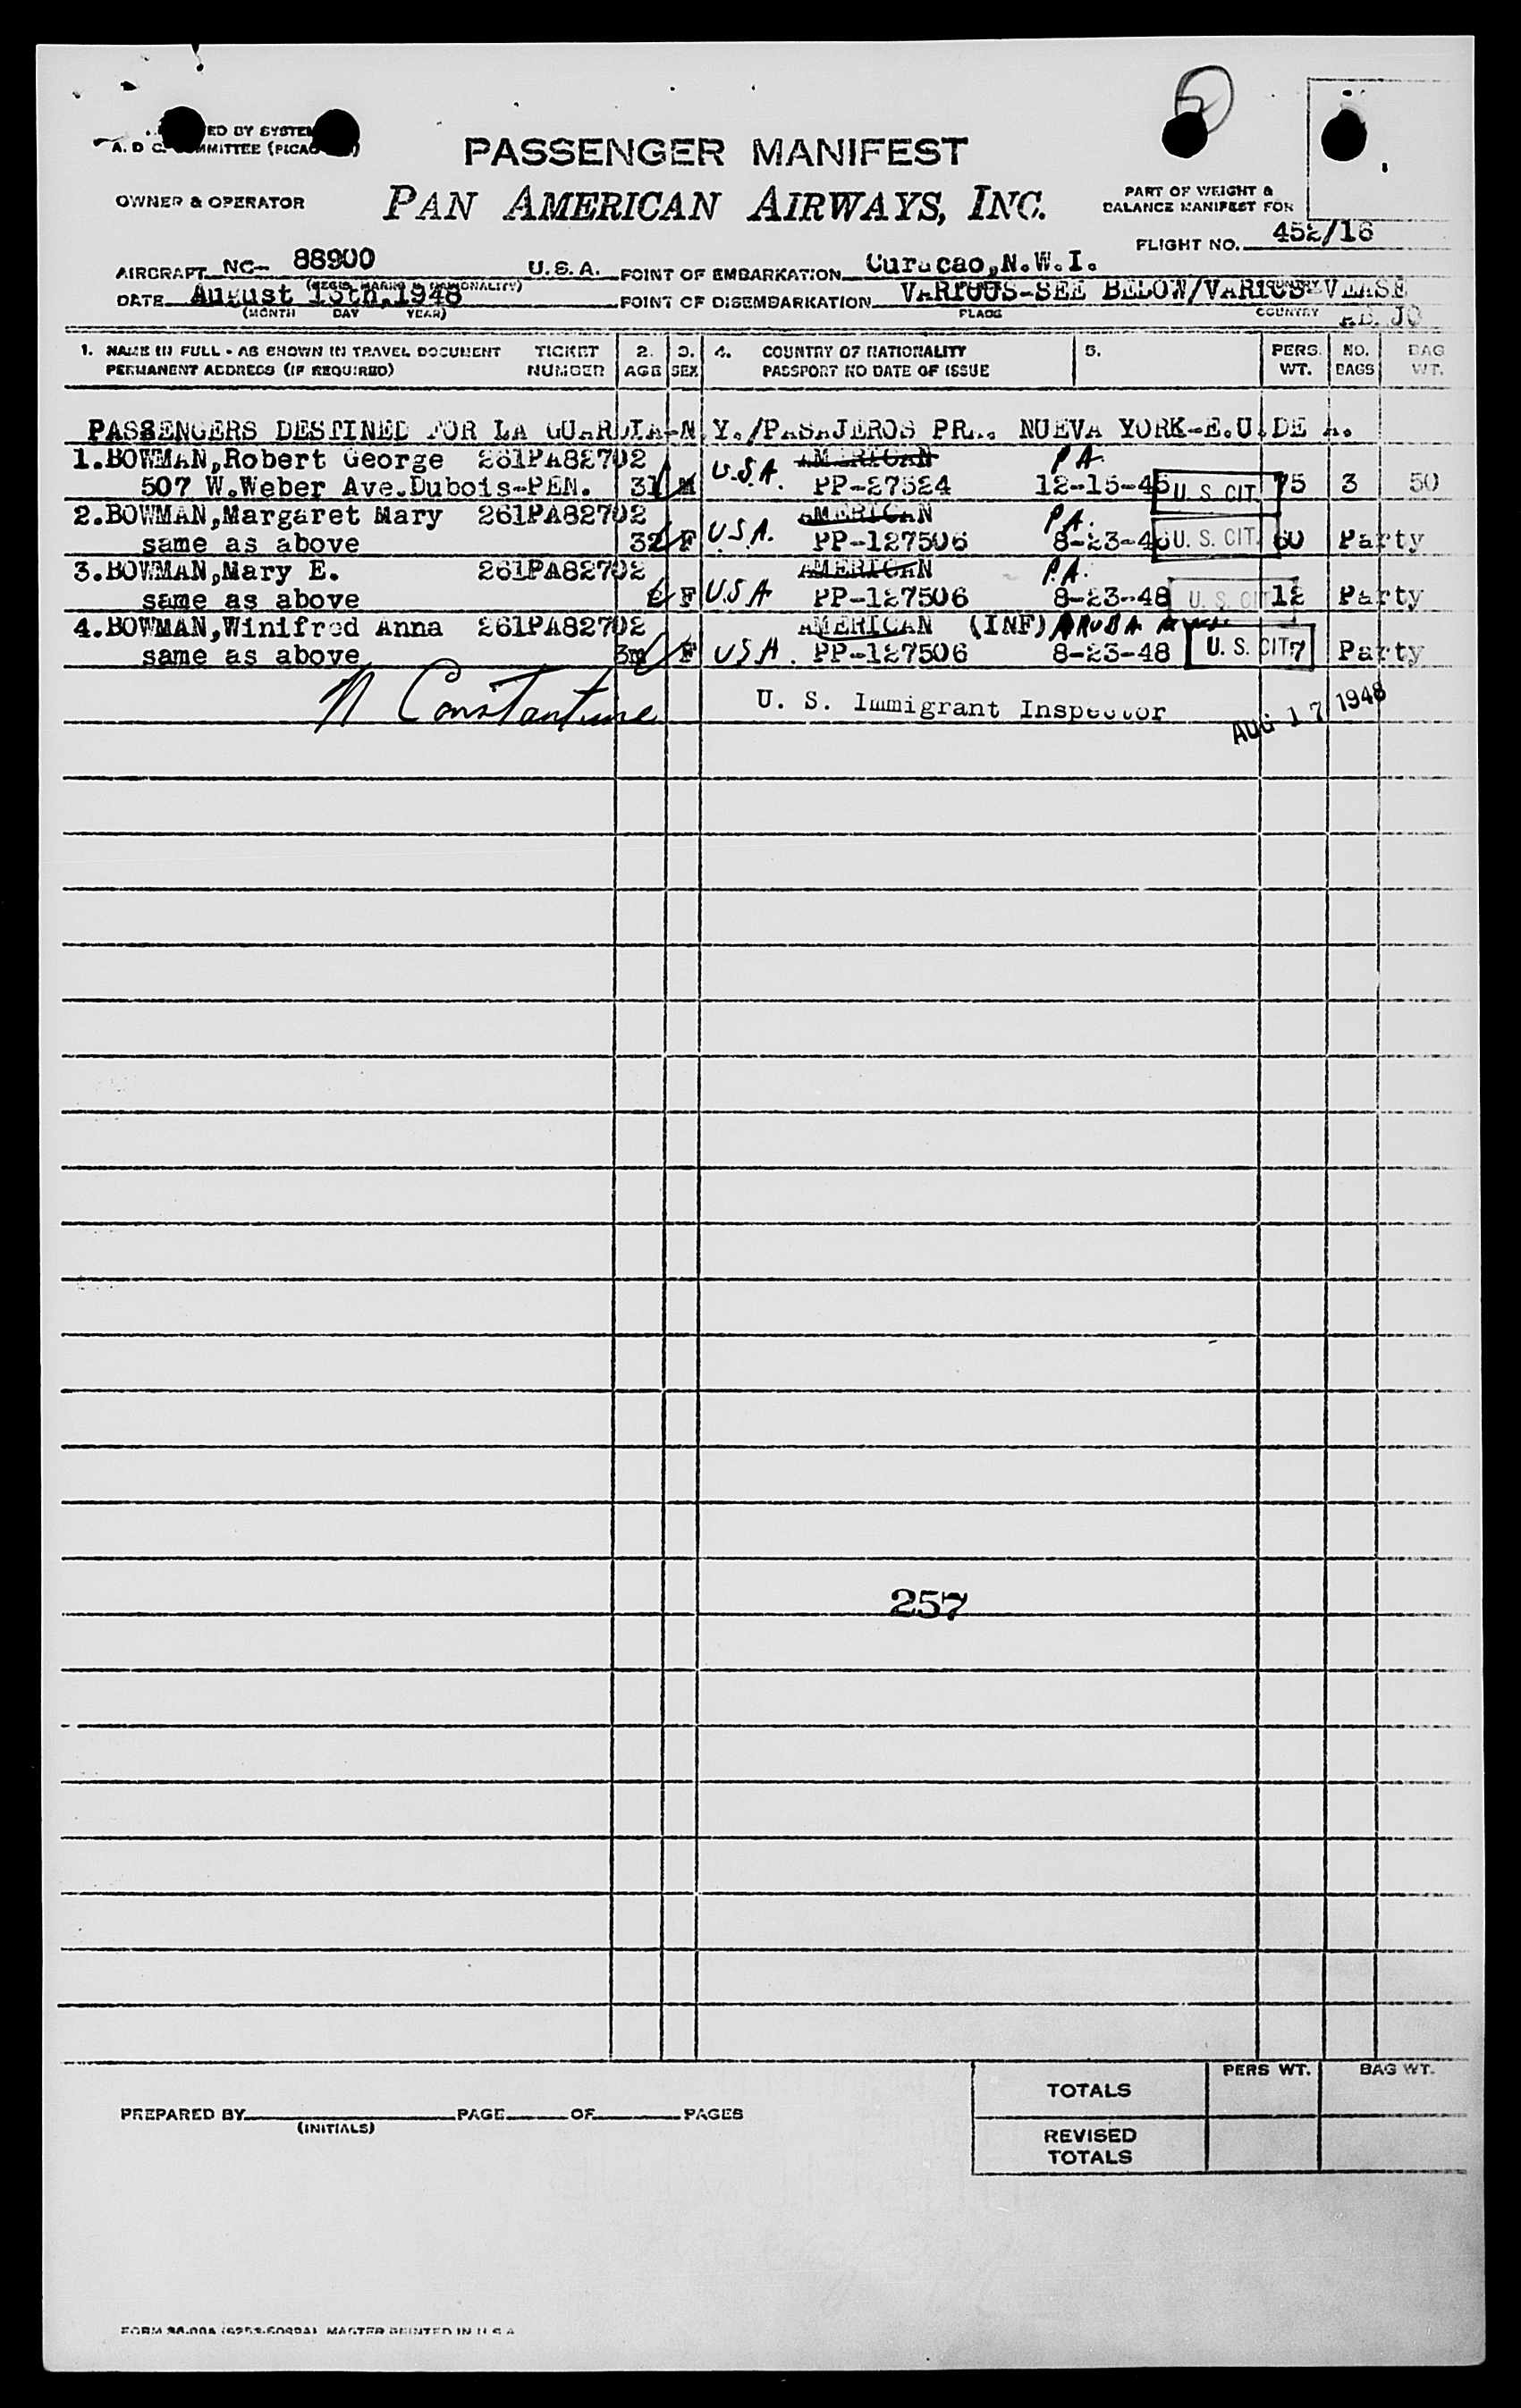 ED BY SYSTEM
A. D C. COMMITTEE (PICAO
PASSENGER MANIFEST
OWNER & OPERATOR
PAN AMERICAN AIRWAYS, INC.
PART OF WEIGHT &
BALANCE MANIFEST FOR
FLIGHT NO. 452/16
AIRCRAFT NC- 88900 U.S.A. POINT OF EMBARKATION Curacao,N.W.I.
(REGIS. MARKS & NATIONALITY) COUNTRY
DATE August 15th,1948 POINT OF DISEMBARKATION VARIOUS-SEE BELOW/VARIOS-VEASE
(MONTH DAY YEAR) PLACE COUNTRY
1. NAME IN FULL - AS SHOWN IN TRAVEL DOCUMENT TICKET 2. 3. 4. COUNTRY OF NATIONALITY 5. PERS. NO. BAG
PERMANENT ADDRESS (IF REQUIRED) NUMBER AGE SEX PASSPORT NO DATE OF ISSUE WT. BAGS WT.
PASSENGERS DESTINED FOR LA GUARDIA-N.Y./PASAJEROS PRA. NUEVA YORK-E.U.DE A.
1.BOWMAN,Robert George 261PA82702 U.S.A. AMERICAN PA.
507 W.Weber Ave.Dubois-PEN. 31 M PP-27524 12-15-45 U. S. CIT. 75 3 50
2.BOWMAN,Margaret Mary 261PA82702 AMERICAN PA.
same as above 32 F U.S.A. PP-127506 8-23-46 U. S. CIT. 60 Party
3.BOWMAN,Mary E. 261PA82702 AMERICAN P.A.
same as above 2 F U.S.A PP-127506 8-23-48 U. S. CIT 12 Party
4.BOWMAN,Winifred Anna 261PA82702 AMERICAN (INF) ARUBA
same as above 3m F USA. PP-127506 8-23-48 U. S. CIT. 7 Party
N Constantine U. S. Immigrant Inspector AUG 17 1948
257
PERS WT. BAG WT.
TOTALS
PREPARED BY PAGE OF PAGES
(INITIALS)
REVISED
TOTALS
MASTER PRINTED IN U S A